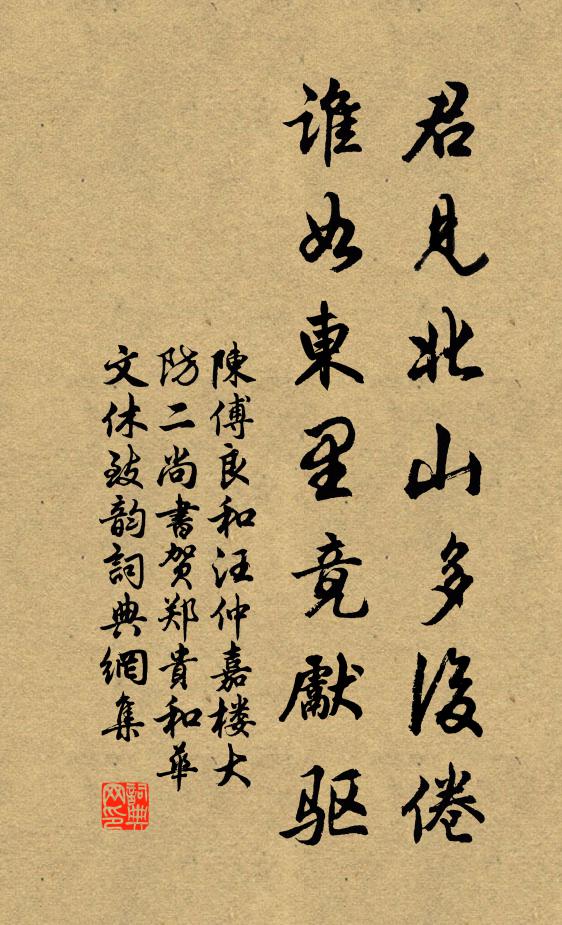 君見北山多後倦
誰如東里竟獻驱
陳傅良和汪仲嘉楼大
防二尚書贺郑貴和華
文休致韵詞典網集
詞典
网印